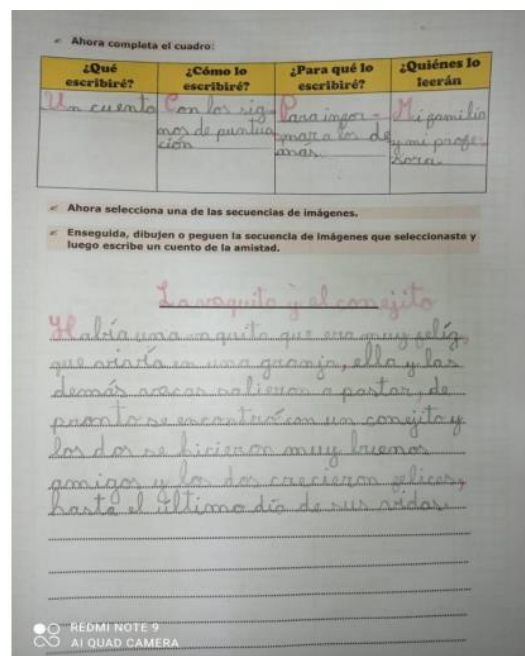 Ahora completa el cuadro:
¿Qué escribiré?
¿Cómo lo escribiré?
¿Para qué lo escribiré?
¿Quiénes lo leerán
Un cuento
Con los sig-
nos de puntua
ción
Para infor-
mar a los de
más.
Mi familia
y mi profe-
sora.
Ahora selecciona una de las secuencias de imágenes.
Enseguida, dibujen o peguen la secuencia de imágenes que seleccionaste y
luego escribe un cuento de la amistad.
La vaquita y el conejito
Había una vaquita que era muy felíz,
que vivía en una granja, ella y las
demás vacas salieron a pastar, de
pronto se encontró con un conejito y
los dos se hicieron muy buenos
amigos y los dos crecieron felices,
hasta el último día de sus vidas.
REDMI NOTE 9
AI QUAD CAMERA